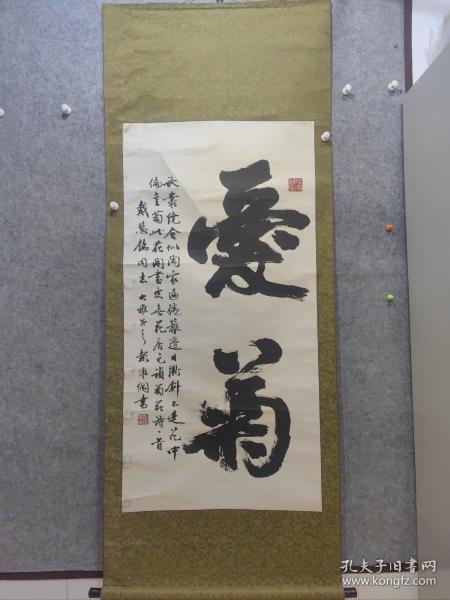 愛菊
秋叢繞舍似陶家遍繞籬邊日漸斜不是花中
偏愛菊此花開盡更無花唐元稹菊花詩一首
戴 同志大雅正之 書
孔夫子旧书网
www.kongfz.com